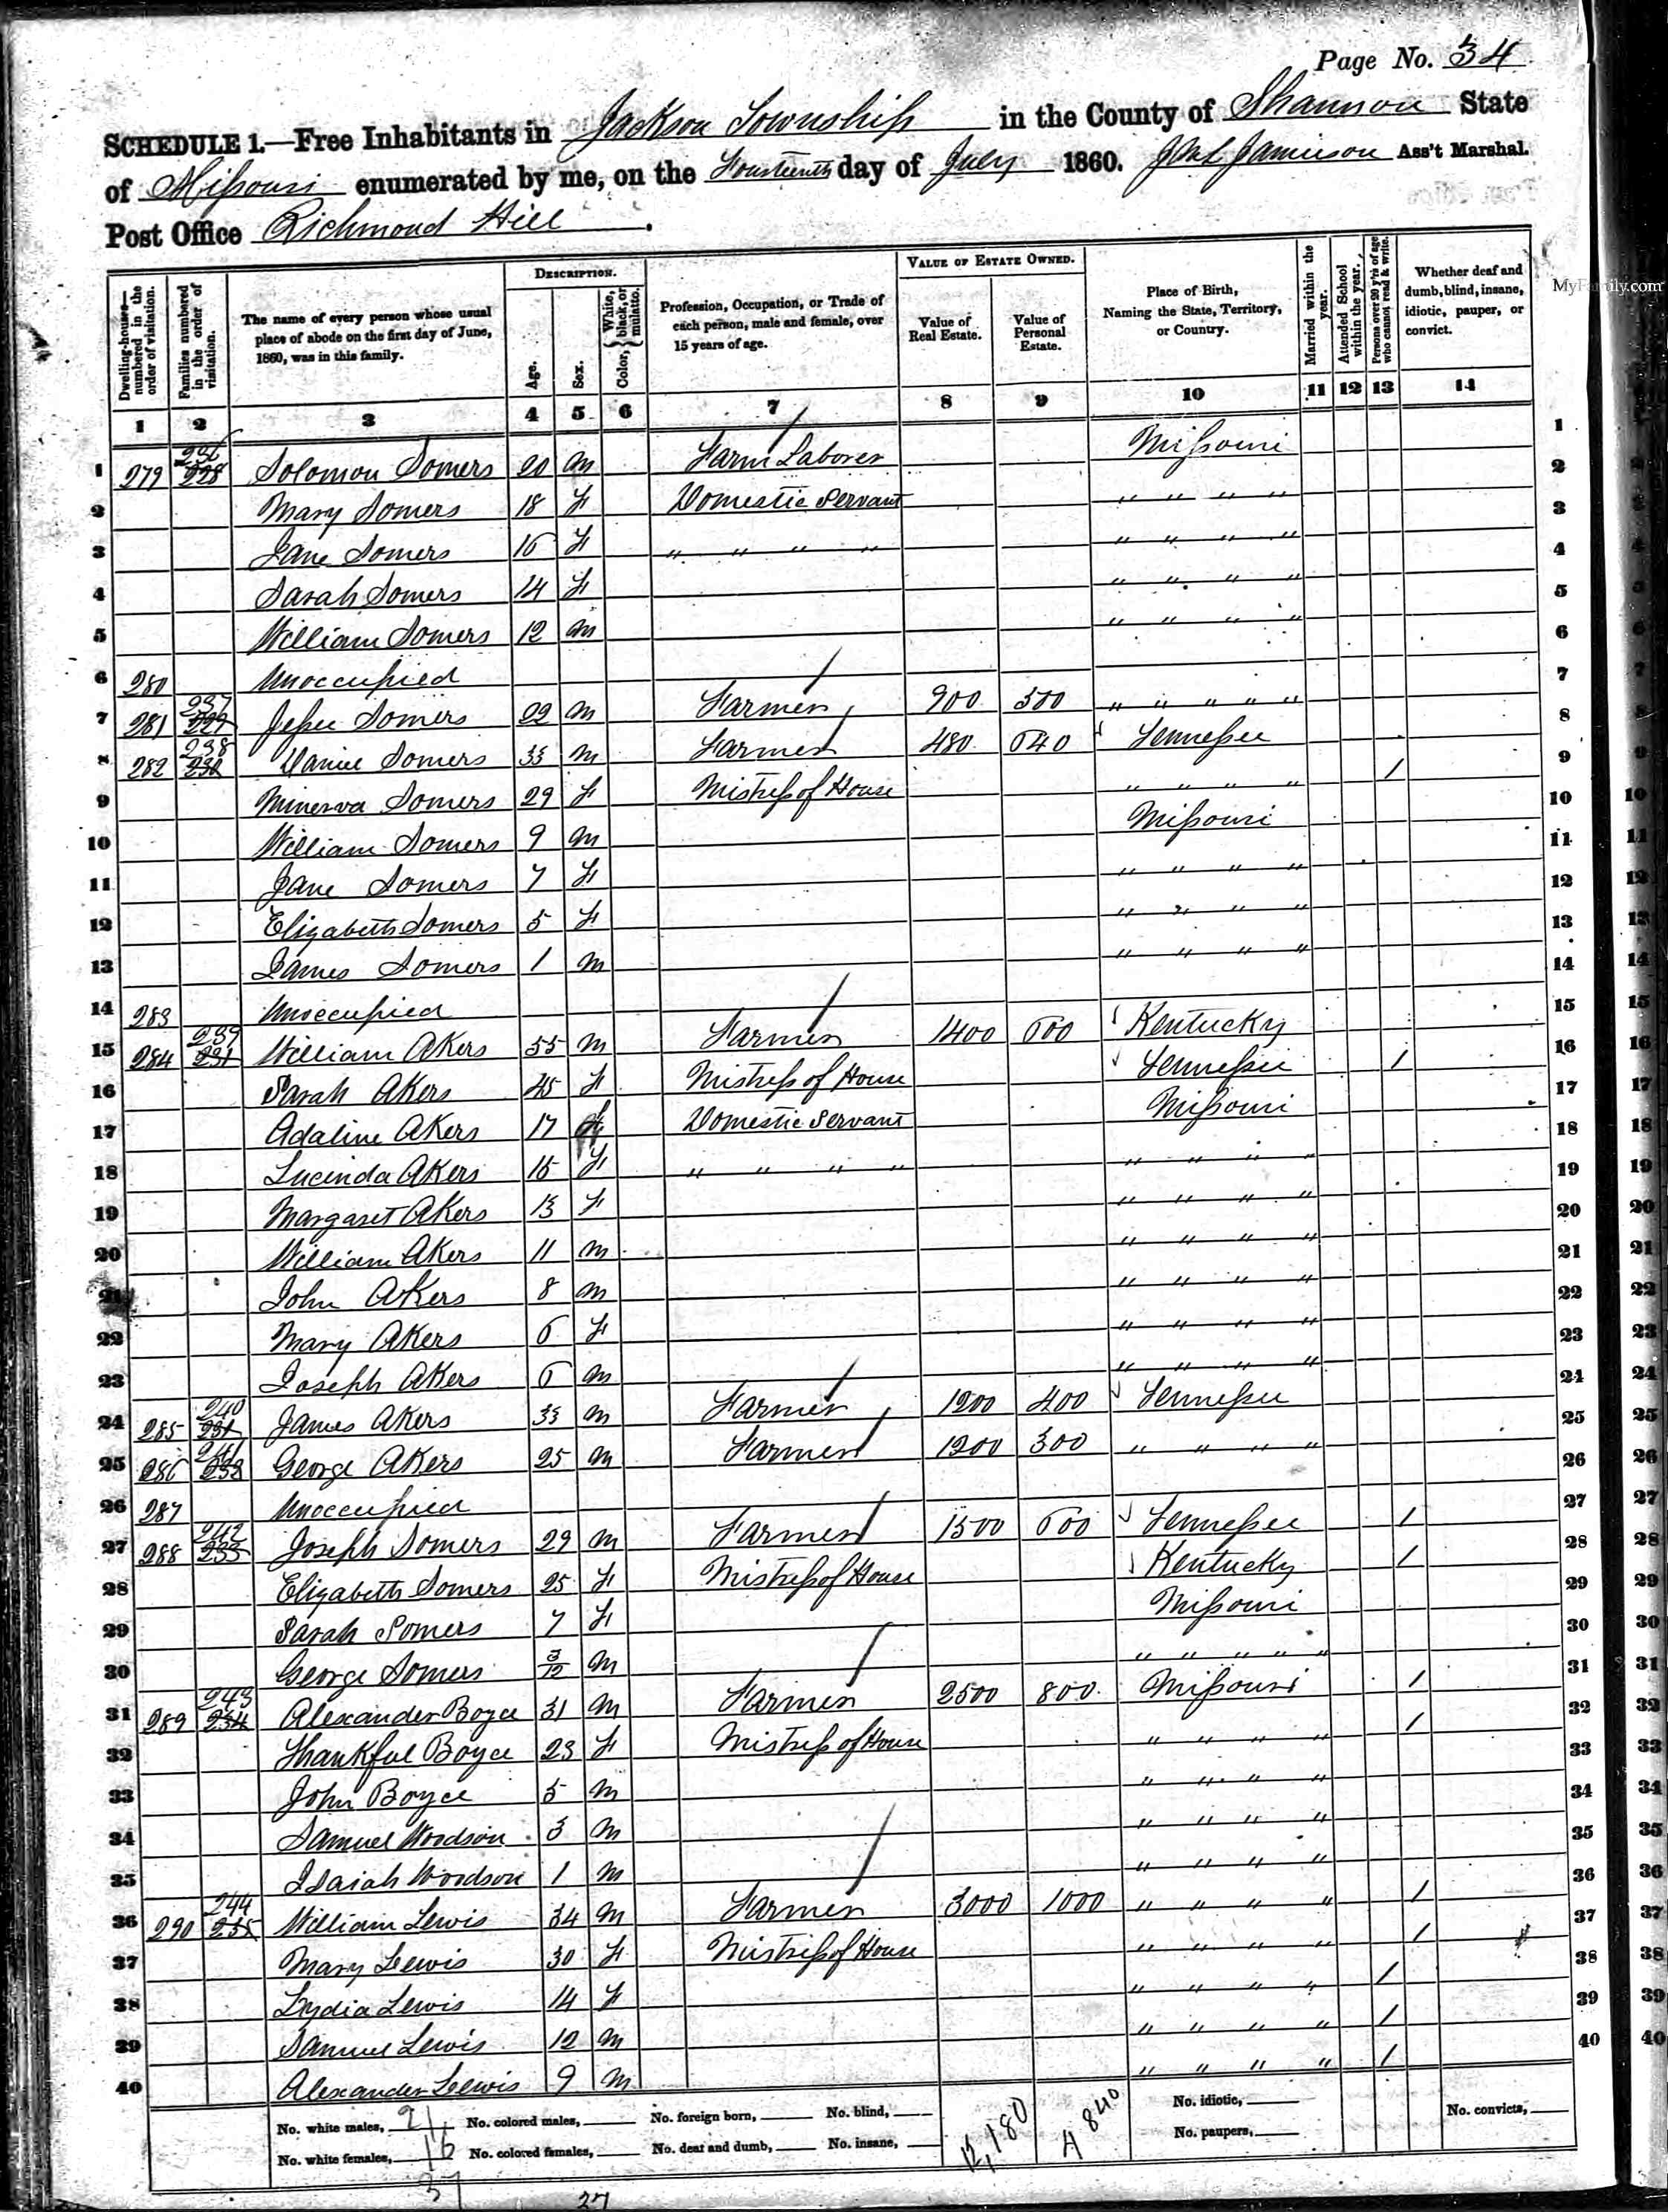 Page No. 34
SCHEDULE 1.—Free Inhabitants in Jackson Township in the County of Shannon State
of Missouri enumerated by me, on the Fourteenth day of July 1860. Jamison Ass't Marshal.
Post Office Richmond Hill.
MyFamily.com
Dwelling-house—numbered in the order of visitation. Families numbered in the order of visitation. The name of every person whose usual place of abode on the first day of June, 1860, was in this family. DESCRIPTION. Age. Sex. Color, White, black, or mulatto. Profession, Occupation, or Trade of each person, male and female, over 15 years of age. VALUE OF ESTATE OWNED. Value of Real Estate. Value of Personal Estate. Place of Birth, Naming the State, Territory, or Country. Married within the year. Attended School within the year. Persons over 20 y'rs of age who cannot read & write. Whether deaf and dumb, blind, insane, idiotic, pauper, or convict.
1 2 3 4 5 6 7 8 9 10 11 12 13 14
1 279 236 228 Solomon Somers 20 m Farm Laborer Missouri 1
2 Mary Somers 18 f Domestic Servant " " " " 2
3 Jane Somers f " " " " " " " " 3
4 Sarah Somers 14 f " " " " 4
5 William Somers 12 m " " " " 5
6 280 Unoccupied 6
7 281 237 229 Jesse Somers 22 m Farmer 900 500 " " " " " 7
8 282 238 230 Daniel Somers 33 m Farmer 480 640 Tennessee 8
9 Minerva Somers 29 f Mistress of House " " " " / 9
10 William Somers 9 m Missouri 10
11 Jane Somers 7 f " " " " 11
12 Elizabeth Somers 5 f " " " " 12
13 James Somers 1 m " " " " 13
14 283 Unoccupied 14
15 284 239 231 William Akers 55 m Farmer 1400 600 Kentucky 15
16 Sarah Akers 45 f Mistress of House Tennessee / 16
17 Adaline Akers 17 f Domestic Servant Missouri 17
18 Lucinda Akers 15 f " " " " " " " " 18
19 Margaret Akers 13 f " " " " 19
20 William Akers 11 m " " " " 20
21 John Akers 8 m " " " " 21
22 Mary Akers 6 f " " " " 22
23 Joseph Akers 6 m " " " " 23
24 285 240 James Akers 33 m Farmer 1200 400 Tennessee 24
25 286 241 George Akers 25 m Farmer 1200 300 " " " " 25
26 287 Unoccupied 26
27 288 242 233 Joseph Somers 29 m Farmer 1500 600 Tennessee / 27
28 Elizabeth Somers 25 f Mistress of House Kentucky / 28
29 Sarah Somers 7 f Missouri 29
30 George Somers 3/12 m " " " " 30
31 289 243 234 Alexander Boyce 31 m Farmer 2500 800 Missouri / 31
32 Thankful Boyce 23 f Mistress of House " " " " / 32
33 John Boyce 5 m " " " " 33
34 Samuel Woodson 3 m " " " " 34
35 Isaiah Woodson 1 m " " " " 35
36 290 244 235 William Lewis 34 m Farmer 3000 1000 " " " " / 36
37 Mary Lewis 30 f Mistress of House " " " " / 37
38 Lydia Lewis 14 f " " " " / 38
39 Samuel Lewis 12 m " " " " / 39
40 Alexander Lewis 9 m " " " " / 40
No. white males, 21 No. colored males, No. foreign born, No. blind, 12,180 4840 No. idiotic, No. convicts,
No. white females, 16 No. colored females, No. deaf and dumb, No. insane, No. paupers,
37 27